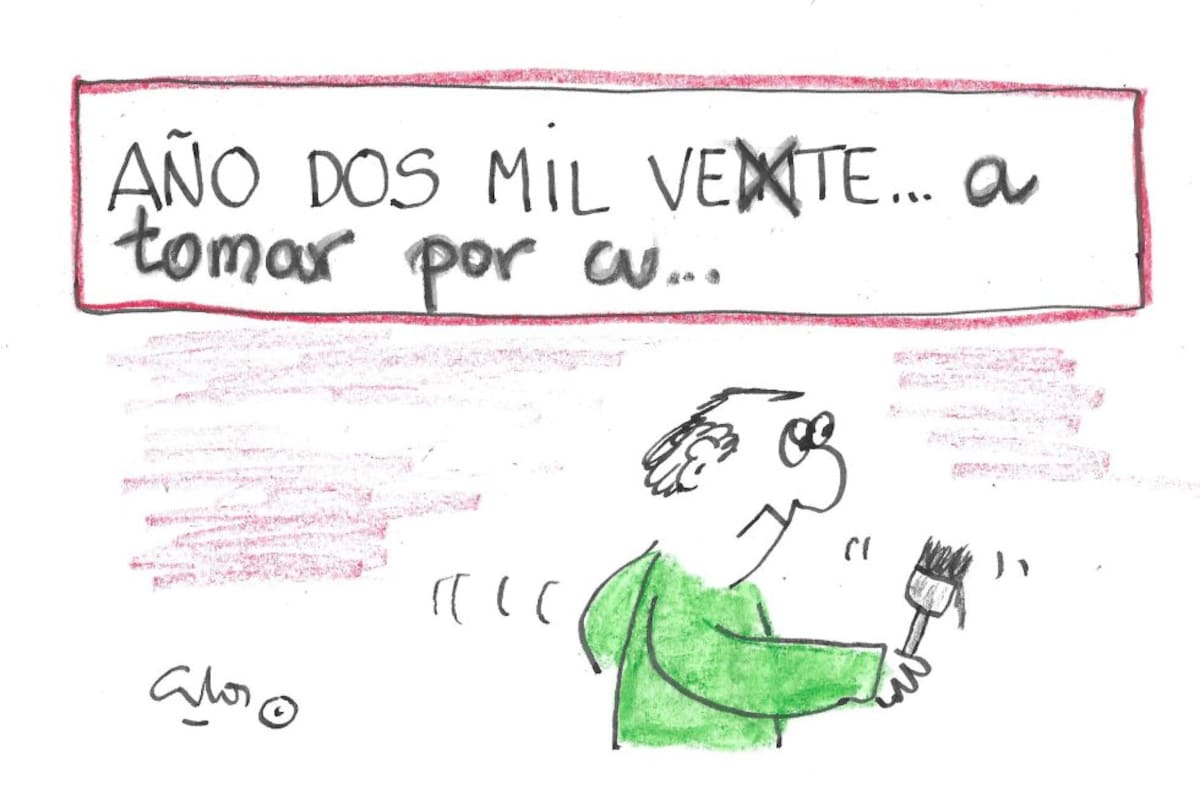 AÑO DOS MIL VEINTE... a
tomar por cu...
Carlos ©